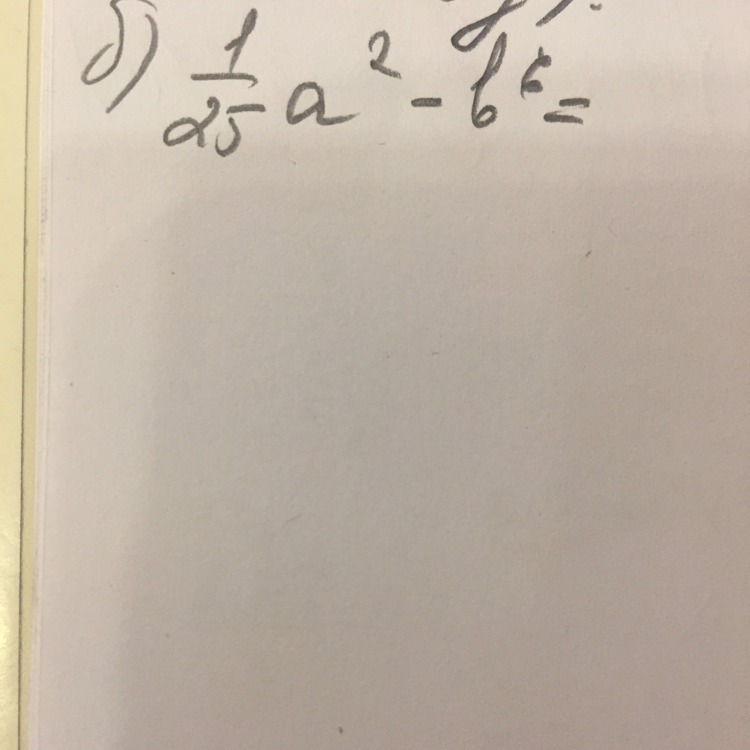 б) 1/25 a² - b⁶ =